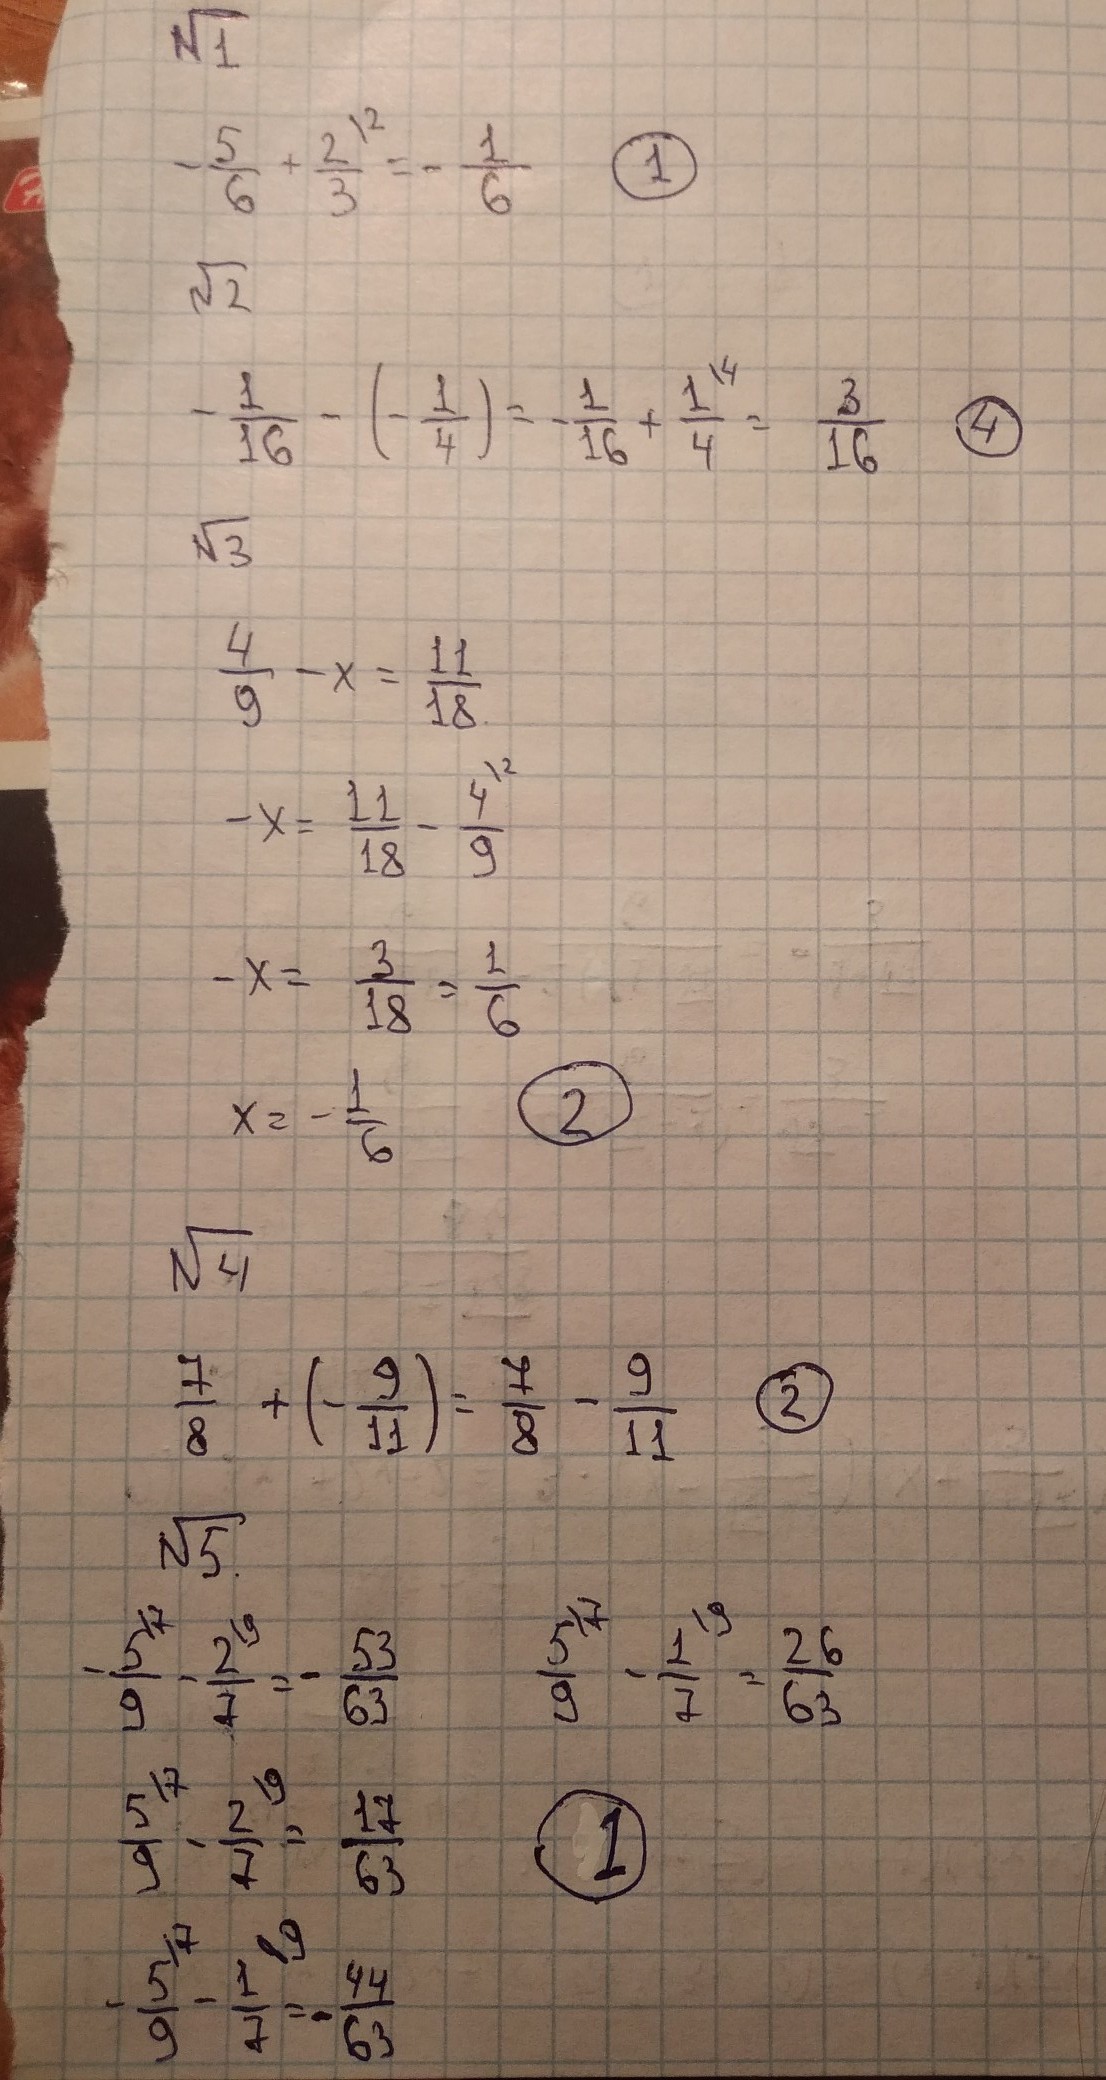 №1
-5/6 + 2\2/3 = -1/6 ①
№2
-1/16 - (-1/4) = -1/16 + 1\4/4 = 3/16 ④
№3
4/9 - x = 11/18
-x = 11/18 - 4\2/9
-x = 3/18 = 1/6
x = -1/6 ②
№4
7/8 + (-9/11) = 7/8 - 9/11 ②
№5.
-5\7/9 - 2\9/7 = -53/63 5\7/9 - 1\9/7 = 26/63
5\7/9 - 2\9/7 = 17/63 ①
-5\7/9 - 1\9/7 = -44/63